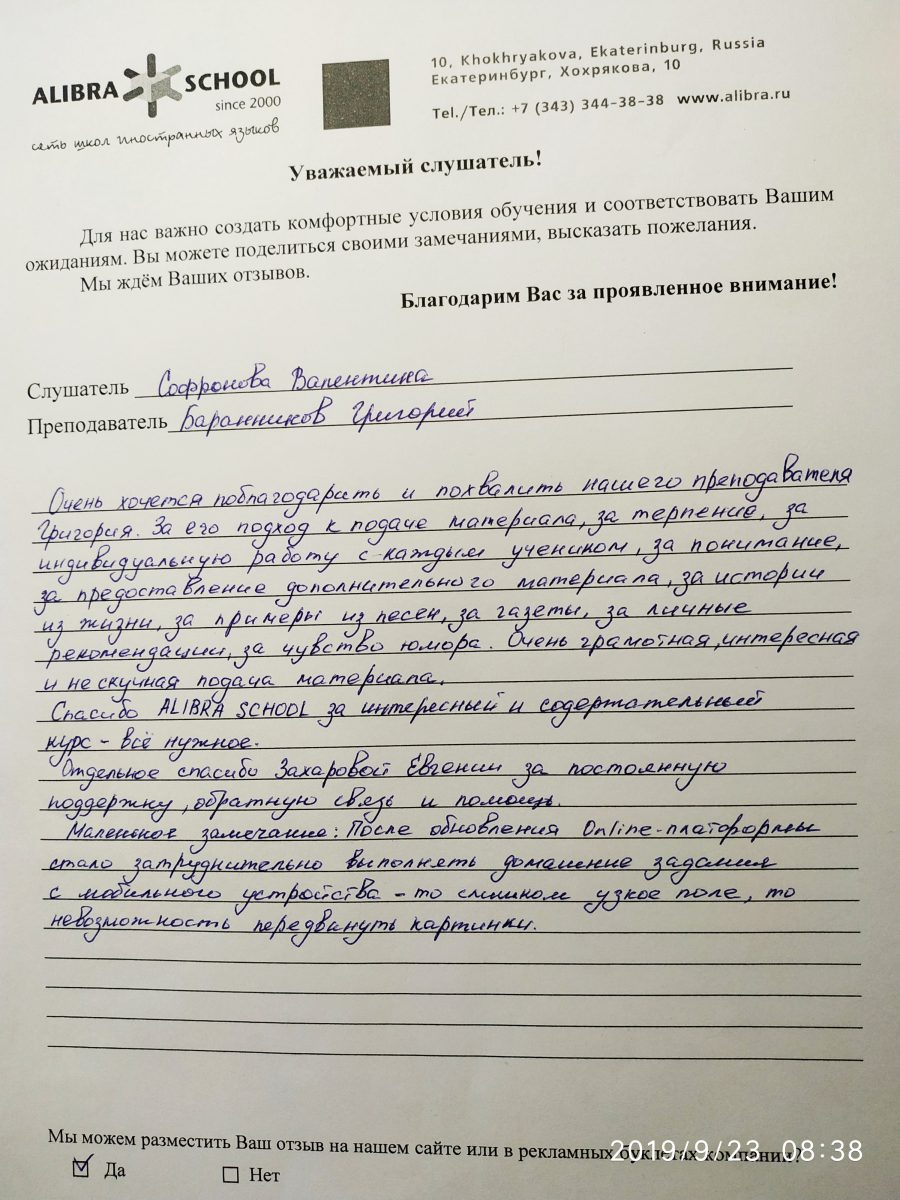 ALIBRA SCHOOL
since 2000
сеть школ иностранных языков
10, Khokhryakova, Ekaterinburg, Russia
Екатеринбург, Хохрякова, 10
Tel./Тел.: +7 (343) 344-38-38 www.alibra.ru
Уважаемый слушатель!
Для нас важно создать комфортные условия обучения и соответствовать Вашим
ожиданиям. Вы можете поделиться своими замечаниями, высказать пожелания.
Мы ждём Ваших отзывов.
Благодарим Вас за проявленное внимание!
Слушатель Софронова Валентина
Преподаватель Баранников Григорий
Очень хочется поблагодарить и похвалить нашего преподавателя
Григория. За его подход к подаче материала, за терпение, за
индивидуальную работу с каждым учеником, за понимание,
за предоставление дополнительного материала, за истории
из жизни, за примеры из песен, за газеты, за личные
рекомендации, за чувство юмора. Очень грамотная, интересная
и не скучная подача материала.
Спасибо ALIBRA SCHOOL за интересный и содержательный
курс - всё нужное.
Отдельное спасибо Захаровой Евгении за постоянную
поддержку, обратную связь и помощь.
Маленькое замечание: После обновления Online-платформы
стало затруднительно выполнять домашние задания
с мобильного устройства - то слишком узкое поле, то
невозможность передвинуть картинки.
Мы можем разместить Ваш отзыв на нашем сайте или в рекламных буклетах компании?
Да Нет
2019/9/23 08:38